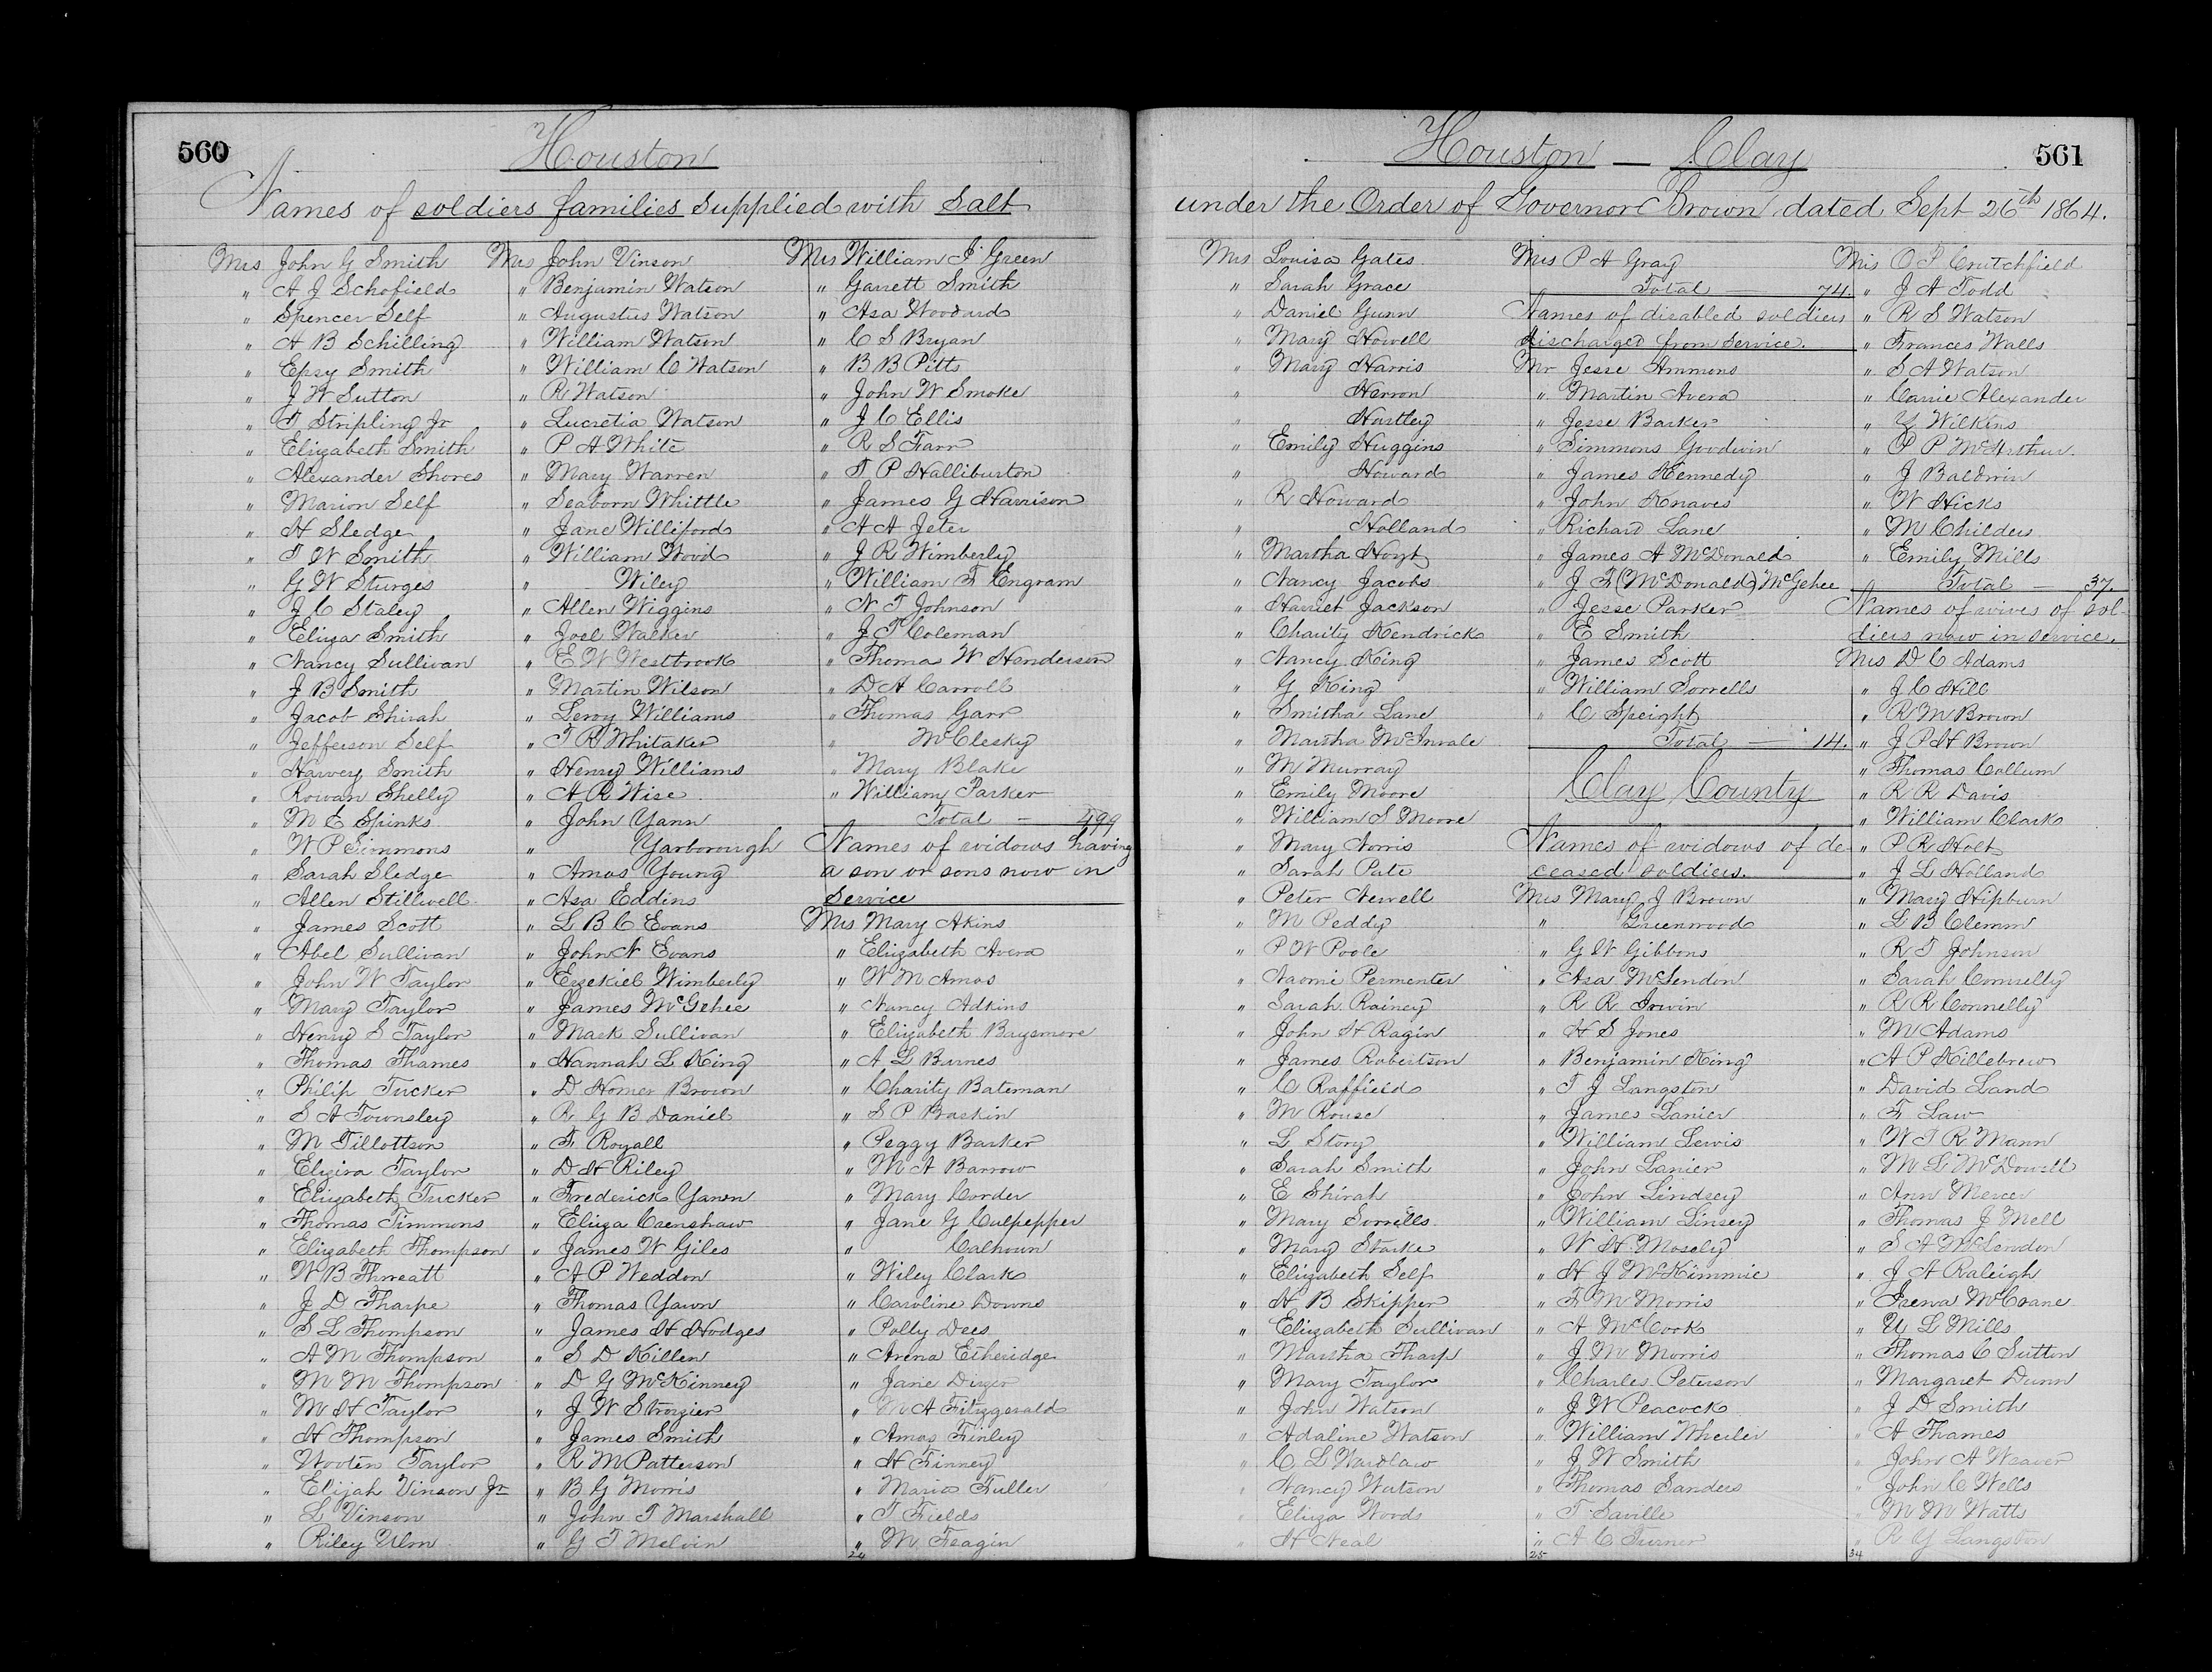 560
Houston
Names of soldiers families supplied with Salt
Mrs John G Smith
" A J Schofield
" Spencer Self
" A B Schilling
" Epsy Smith
" J W Sutton
" T Stripling Jr
" Elizabeth Smith
" Alexander Shores
" Marion Self
" H Sledge
" T W Smith
" G W Sturges
" J C Staley
" Eliza Smith
" Nancy Sullivan
" J B Smith
" Jacob Shirah
" Jefferson Self
" Harvey Smith
" Rowan Shelly
" M E Spinks
" W P Simmons
" Sarah Sledge
" Allen Stillwell
" James Scott
" Abel Sullivan
" John W Taylor
" Mary Taylor
" Henry S Taylor
" Thomas Thames
" Philip Tucker
" S A Townsley
" M Tillottson
" Elizira Taylor
" Elizabeth Tucker
" Thomas Timmons
" Elizabeth Thompson
" W B Threatt
" J D Tharpe
" S L Thompson
" A M Thompson
" M M Thompson
" M H Taylor
" H Thompson
" Wooten Taylor
" Elijah Vinson Jr
" L Vinson
" Riley Ulm
Mrs John Vinson
" Benjamin Watson
" Augustus Watson
" William Watson
" William C Watson
" R Watson
" Lucretia Watson
" P A White
" Mary Warren
" Seaborn Whittle
" Jane Williford
" William Wood
" Wiley
" Allen Wiggins
" Joel Walker
" E W Westbrook
" Martin Wilson
" Leroy Williams
" T R Whitaker
" Henry Williams
" A R Wise
" John Yann
" Yarborough
" Amos Young
" Asa Eddins
" L B C Evans
" John N Evans
" Ezekiel Wimberly
" James McGehee
" Mark Sullivan
" Hannah L King
" D Homer Brown
" R G B Daniel
" F Royall
" D H Riley
" Frederick Yawn
" Eliza Caenshaw
" James W Giles
" A P Weddon
" Thomas Yawn
" James H Hodges
" S D Killen
" D G McKinney
" J W Strozier
" James Smith
" R M Patterson
" B G Morris
" John T Marshall
" G T Melvin
Mrs William J Green
" Garrett Smith
" Asa Woodard
" C S Bryan
" B B Pitts
" John W Smoke
" J C Ellis
" R S Farr
" T P Halliburton
" James G Harrison
" A A Jeter
" J R Wimberly
" William F Engram
" N T Johnson
" J T Coleman
" Thomas W Henderson
" D A Carroll
" Thomas Garr
" McClesky
" Mary Blake
" William Parker
Total — 499
Names of widows having
a son or sons now in
service
Mrs Mary Akins
" Elizabeth Avera
" W M Amos
" Nancy Adkins
" Elizabeth Baysmore
" A L Burnes
" Charity Bateman
" S P Baskin
" Peggy Barker
" M A Barrow
" Mary Corder
" Jane G Culpepper
" Calhoun
" Wiley Clark
" Caroline Downs
" Polly Dees
" Arena Etheridge
" Jane
" M A Fitzgerald
" Amos Finley
" H Finney
" Maria Fuller
" T Fields
" M Feagin
24
561
Houston — Clay
under the Order of Governor Brown dated Sept 26th 1864.
Mrs Louisa Gates
" Sarah Grace
" Daniel Gunn
" Mary Howell
" Mary Harris
" Herron
" Hartley
" Emily Huggins
" Howard
" R Howard
" Holland
" Martha Hoyt
" Nancy Jacobs
" Harriet Jackson
" Charity Kendrick
" Nancy King
" G King
" Smitha Lane
" Martha McInvale
" M Murray
" Emily Moore
" William S Moore
" Mary Norris
" Sarah Pate
" Peter Newell
" M Peddy
" P W Poole
" Naomi Permenter
" Sarah Rainey
" John H Ragin
" James Robertson
" C Raffield
" M Rouse
" L Story
" Sarah Smith
" E Shirah
" Mary Sorrells
" Mary Starke
" Elizabeth Self
" H B Skipper
" Elizabeth Sullivan
" Martha Tharp
" Mary Taylor
" John Watson
" Adaline Watson
" C L Wardlaw
" Nancy Watson
" Eliza Woods
" H Neal
Mrs P A Gray
Total — 74.
Names of disabled soldiers
discharged from service.
Mr Jesse Ammons
" Martin Avera
" Jesse Barker
" Simmons Goodwin
" James Kennedy
" John Knaves
" Richard Lane
" James A McDonald
" J F (McDonald) McGehee
" Jesse Parker
" E Smith
" James Scott
" William Sorrells
" C Speight
Total — 14.
Clay County
Names of widows of de-
ceased soldiers.
Mrs Mary J Brown
" Greenwood
" G W Gibbons
" Asa McLendon
" R R Irwin
" H S Jones
" Benjamin King
" T J Langston
" James Lanier
" William Lewis
" John Lanier
" John Lindsey
" William Linsey
" W H Mosely
" H J McKimmie
" F M Morris
" A McCook
" J M Morris
" Charles Peterson
" J W Peacock
" William Wheeler
" J W Smith
" Thomas Sanders
" T Saville
" A C Turner
25
Mrs O P Crutchfield
" J A Todd
" R S Watson
" Frances Walls
" S A Watson
" Carrie Alexander
" Y Wilkins
" P P McArthur
" J Baldwin
" W Hicks
" M Childers
" Emily Mills
Total — 37.
Names of wives of sol-
diers now in service.
Mrs D C Adams
" J C Hill
" R M Brown
" J P H Brown
" Thomas Collum
" R R Davis
" William Clark
" P R Holt
" J L Holland
" Mary Hipburn
" L B Clemm
" R T Johnson
" Sarah Connelly
" R R Connelly
" M Adams
" A P Killebrew
" David Land
" F Law
" W T R Mann
" M L McDowell
" Ann Mercer
" Thomas J Mell
" S A McLendon
" J A Raleigh
" Irena McCrane
" U L Mills
" Thomas C Sutton
" Margaret Dunn
" J D Smith
" A Thames
" John A Weaver
" John C Wells
" M M Watts
" R Y Langston
34